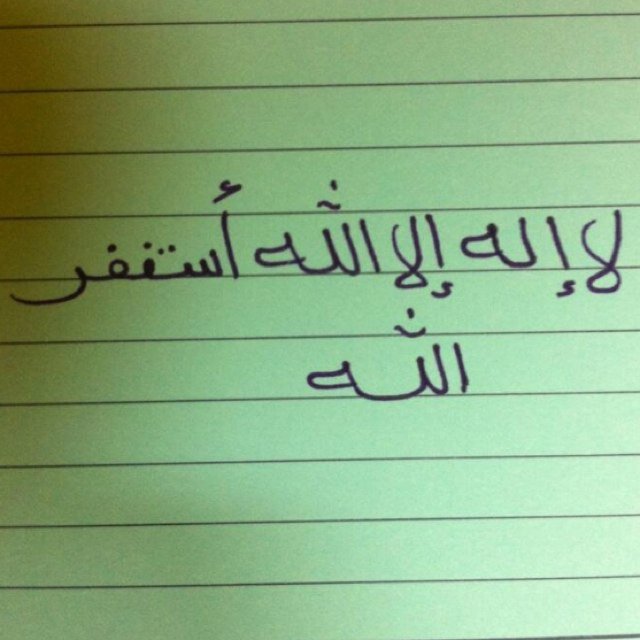 لا إله إلا الله أستغفر
الله